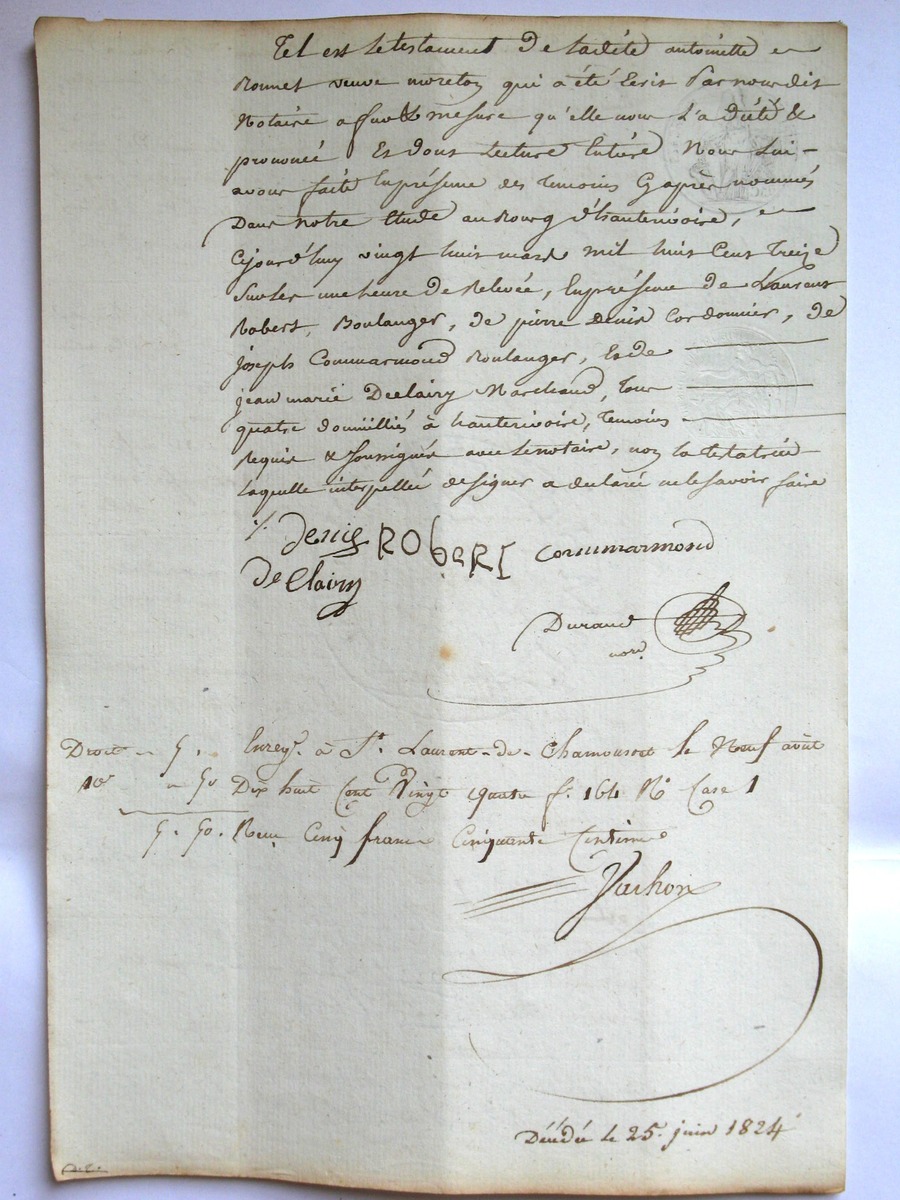 Tel est le testament de ladite antoinette
Bonnet veuve moreton qui a été Ecrit Par nous dit
Notaire a fur & mésure qu'elle nous L'a dicté &
prononcé Et dont Lecture Entière Nous Lui
avons faite En présence des Temoins Cy après nommés
Dans notre Etude au Bourg d'hauterivoire,
Cejourd'huy vingt huit mars mil huit Cent Treize
Sur les une heure de Relevée, En présence de Laurent
Robert, Boulanger, de pierre Denis Cordonnier, de
joseph Commarmond Boulanger, Et de
jean marie Declairy Marchand, Tous
quatre domiciliés à hauterivoire, Temoins
Requis & soussignés avec le notaire, non la testatrice
Laquelle interpellée de signer a declaré ne le savoir faire
Denis ROBERT Commarmond
DeClairy
Durand
nore.
Droit 5. Enregt. à St. Laurent-de-Chamousset le Neuf août
10e 50 Dix huit Cent Vingt quatre f. 164 Ro Case 1
5. 50. Reçu Cinq francs Cinquante Centimes
Vachon
Décédée le 25. juin 1824